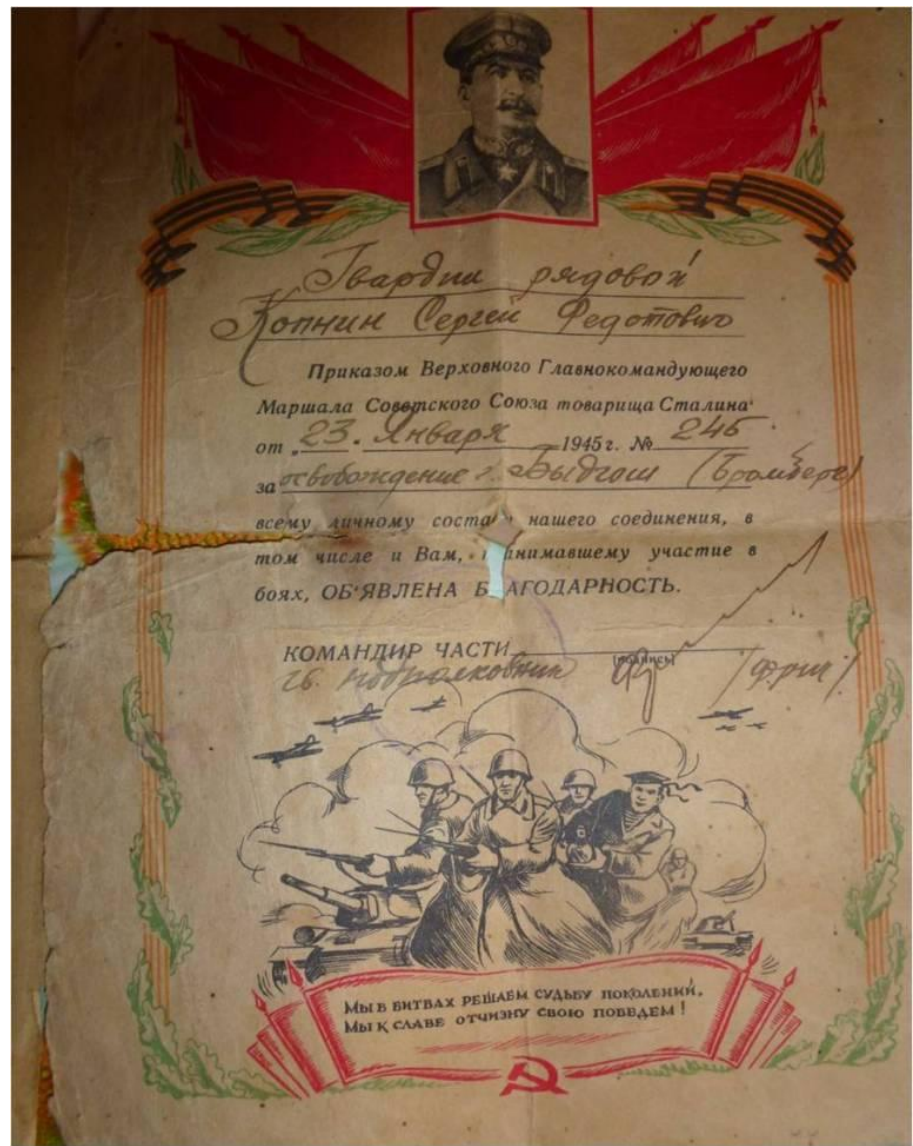 Гвардии рядовой
Копнин Сергей Федотович
Приказом Верховного Главнокомандующего
Маршала Советского Союза товарища Сталина
от „23. Января 1945 г. № 246
за освобождение г. Быдгощ (Бромберг)
всему личному соста нашего соединения, в
том числе и Вам, нимавшему участие в
боях, ОБ'ЯВЛЕНА Б АГОДАРНОСТЬ.
КОМАНДИР ЧАСТИ
(подпись)
гв. подполковник
МЫ В БИТВАХ РЕШАЕМ СУДЬБУ ПОКОЛЕНИЙ,
МЫ К СЛАВЕ ОТЧИЗНУ СВОЮ ПОВЕДЕМ!